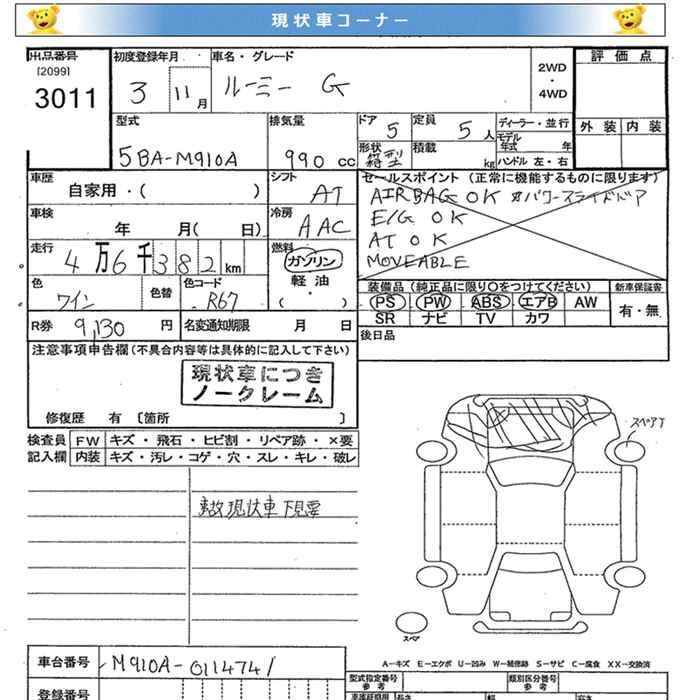 現状車コーナー
出品番号
[2099]
3011
初度登録年月
3 11月
車名・グレード
ルーミー G
2WD
・
4WD
評価点
外装 内装
型式
5BA-M910A
排気量
990 cc
ドア 5
定員 5人
形状 箱型
積載 kg
ディーラー・並行
モデル年式 年
ハンドル 左・右
車歴
自家用・( )
シフト
AT
車検
年 月( 日)
冷房
AAC
走行
4万6千382km
燃料
ガソリン
軽油
・
( )
色
ワイン
色替
色コード
R67
R券 9,130 円
名変通知期限 月 日
セールスポイント (正常に機能するものに限ります)
AIRBAG OK #パワースライドドア
E/G OK
AT OK
MOVEABLE
装備品 (純正品に限り○をつけてください)
PS PW ABS エアB AW
SR ナビ TV カワ
新車保証書
有・無
後日品
注意事項申告欄 (不具合内容等は具体的に記入して下さい)
現状車につき
ノークレーム
修復歴 有 〔箇所 〕
検査員記入欄
FW キズ・飛石・ヒビ割・リペア跡・×要
内装 キズ・汚レ・コゲ・穴・スレ・キレ・破レ
事故現状車 下見要
スペアT
スペア
A―キズ E―エクボ U―凹み W―補修跡 S―サビ C―腐食 XX―交換済
車台番号 M910A-0114741
登録番号
型式指定番号
参考
類別区分番号
参考